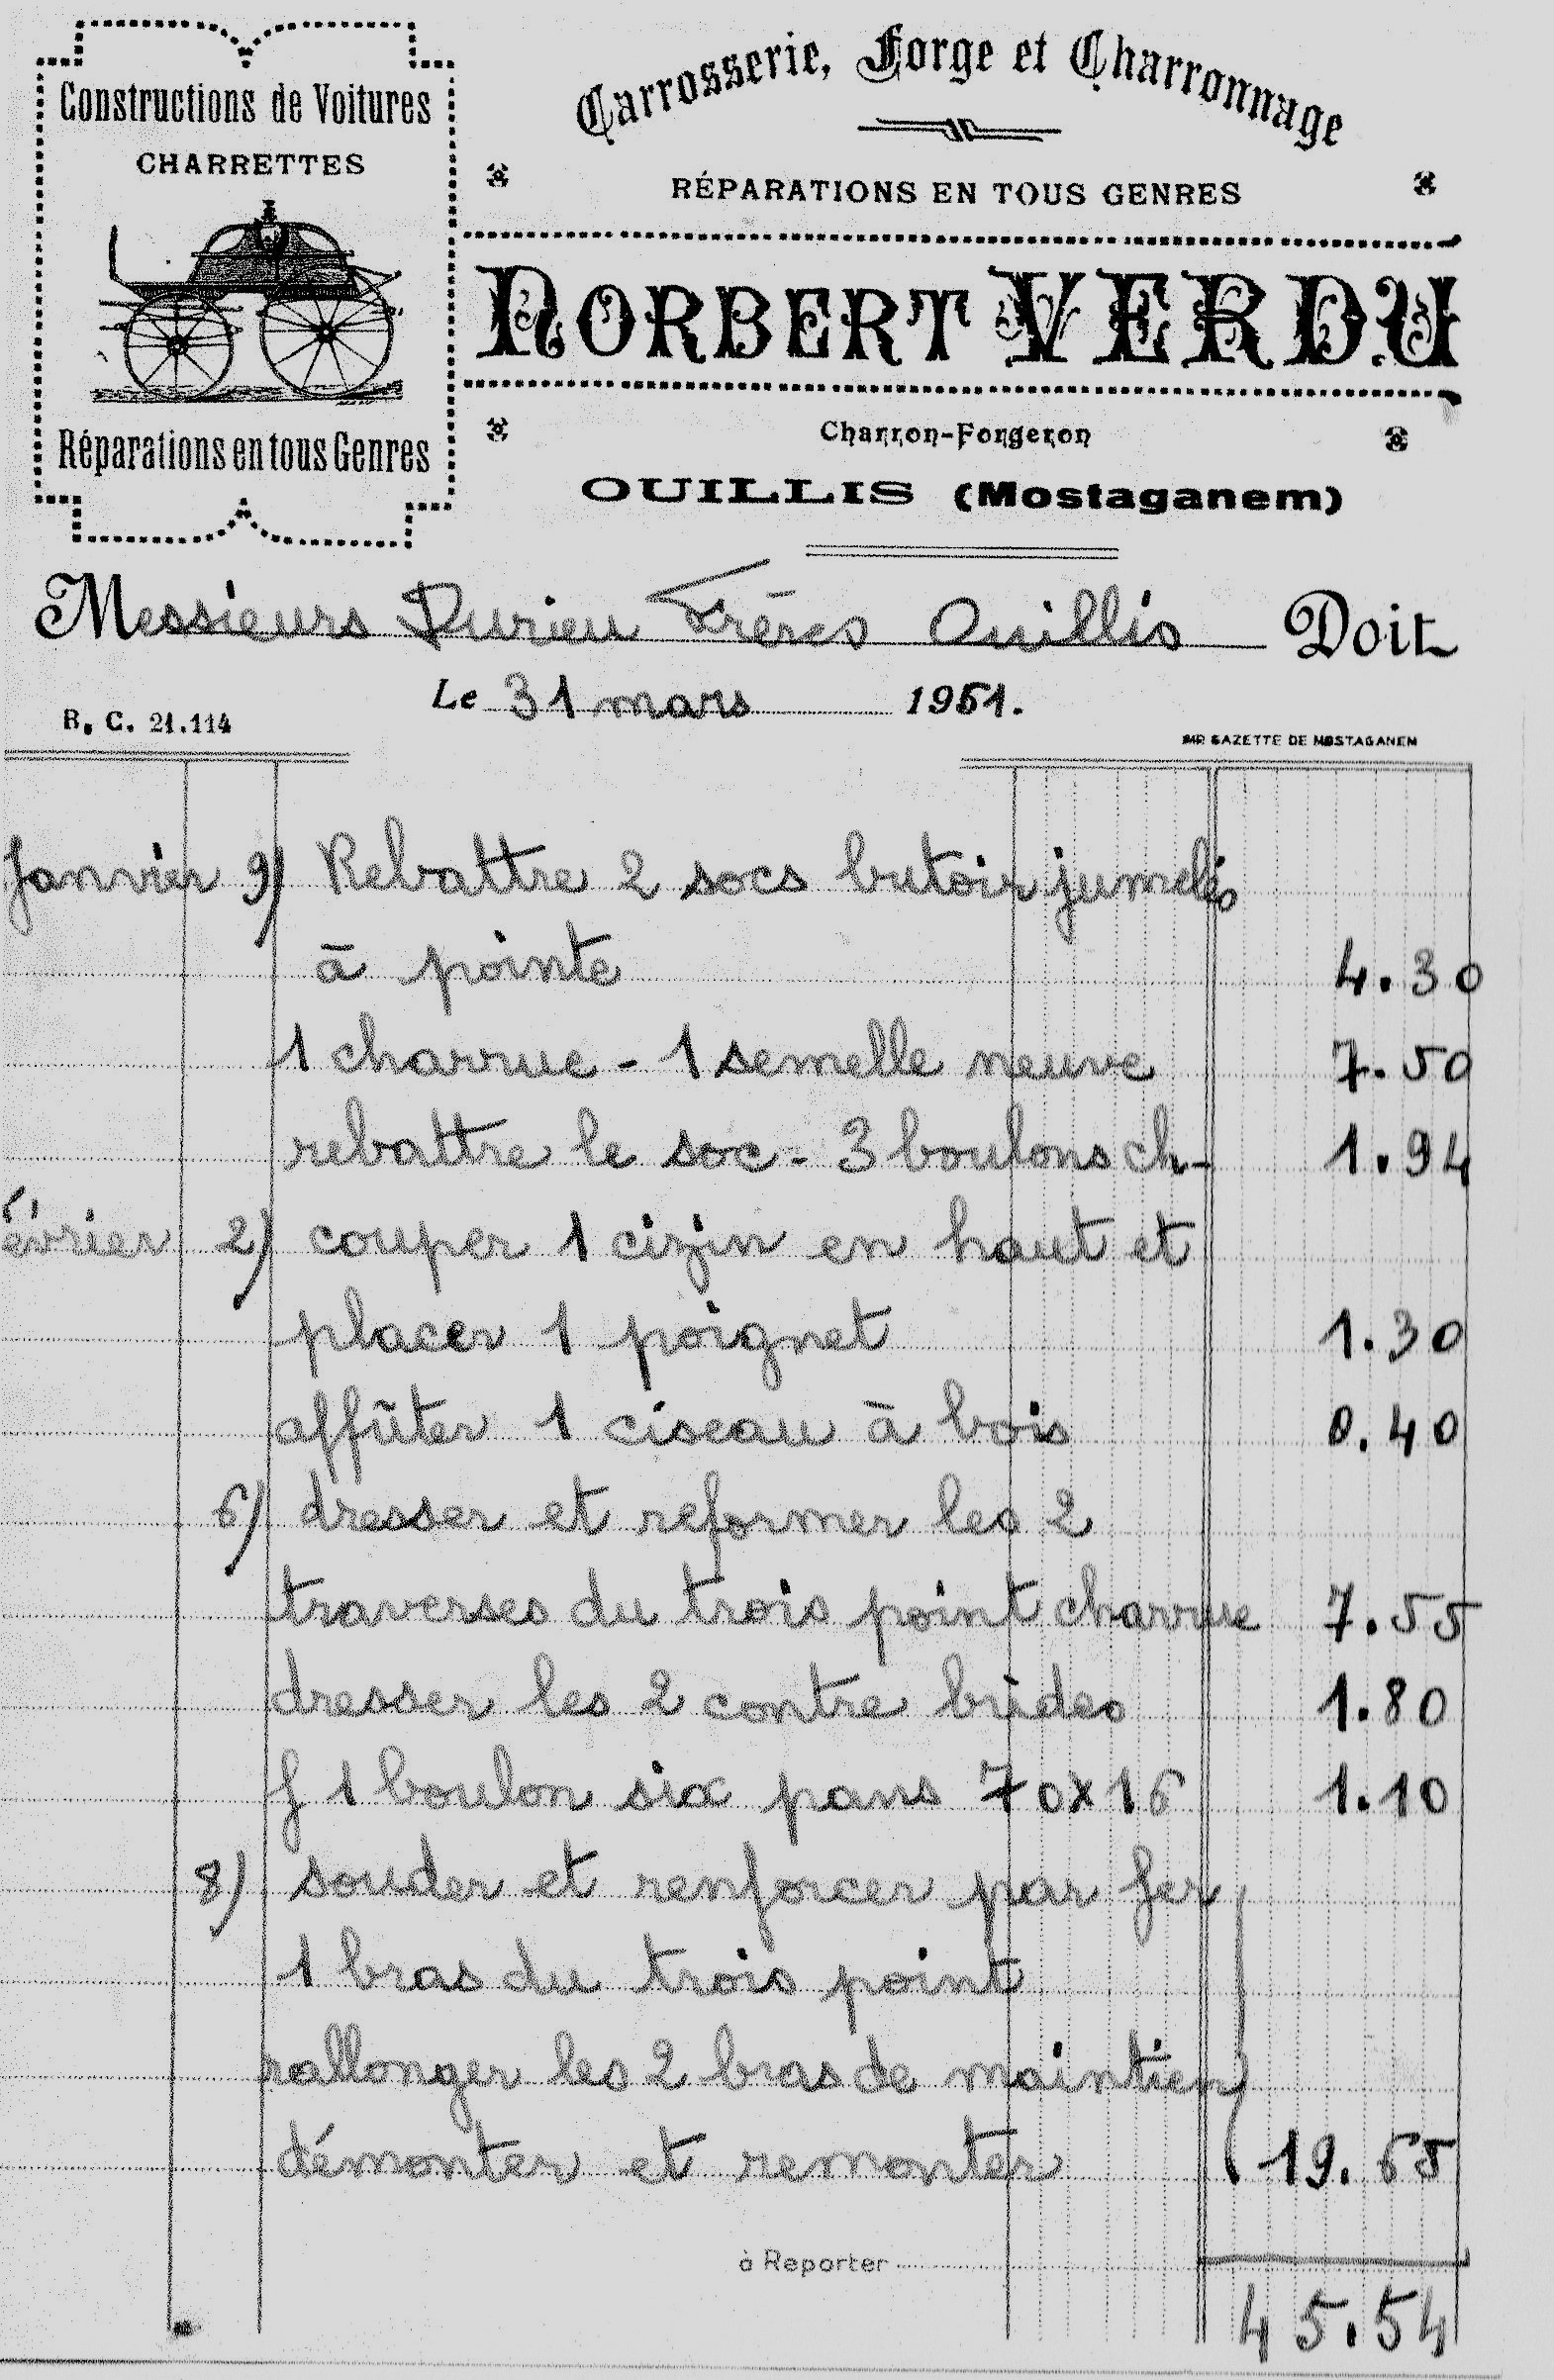 Constructions de Voitures
CHARRETTES
Réparations en tous Genres
Carrosserie, Forge et Charronnage
RÉPARATIONS EN TOUS GENRES
NORBERT VERDU
Charron-Forgeron
OUILLIS (Mostaganem)
Messieurs Durieu Frères Ouillis Doit
Le 31 mars 1961.
R. C. 21.114
IMP. GAZETTE DE MOSTAGANEM
Janvier 9) Rebattre 2 socs butoir jumelés
à pointe 4.30
1 charrue - 1 semelle neuve 7.50
rebattre le soc - 3 boulons ch- 1.94
évrier 2) couper 1 cizin en haut et
placer 1 poignet 1.30
affûter 1 ciseau à bois 0.40
6) dresser et reformer les 2
traverses du trois point charrue 7.55
dresser les 2 contre brides 1.80
f 1 boulon six pans 70x16 1.10
8) souder et renforcer par fer
1 bras du trois point
rallonger les 2 bras de maintien
démonter et remonter 19.65
à Reporter
45.54